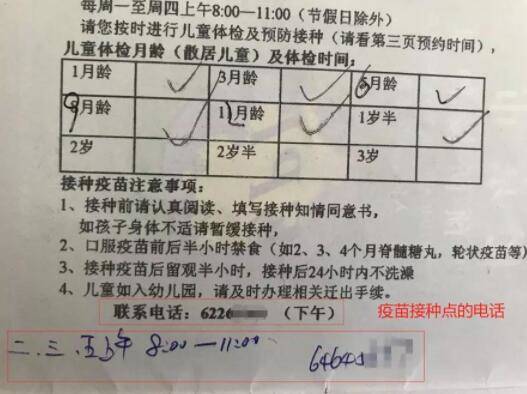 每周一至周四上午8:00—11:00（节假日除外）
请您按时进行儿童体检及预防接种（请看第三页预约时间），
儿童体检月龄（散居儿童）及体检时间：
1月龄 3月龄 6月龄
8月龄 11月龄 1岁半
2岁 2岁半 3岁
接种疫苗注意事项：
1、接种前请认真阅读、填写接种知情同意书，
如孩子身体不适请暂缓接种，
2、口服疫苗前后半小时禁食（如2、3、4个月脊髓糖丸，轮状疫苗等）
3、接种疫苗后留观半小时，接种后24小时内不洗澡
4、儿童如入幼儿园，请及时办理相关迁出手续。
联系电话：622 （下午） 疫苗接种点的电话
二.三.五上午 8:00—11:00
6464